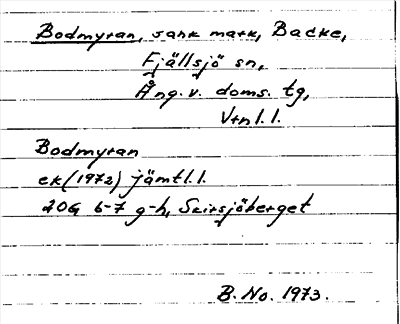 Bodmyran, sank mark, Backe,
Fjällsjö sn,
Ång. v. doms. tg,
Vtnl. l.
Bodmyran
ek (1972) jämtl. l.
20G 6-7 g-h, Skirsjöberget
B. No. 1973.